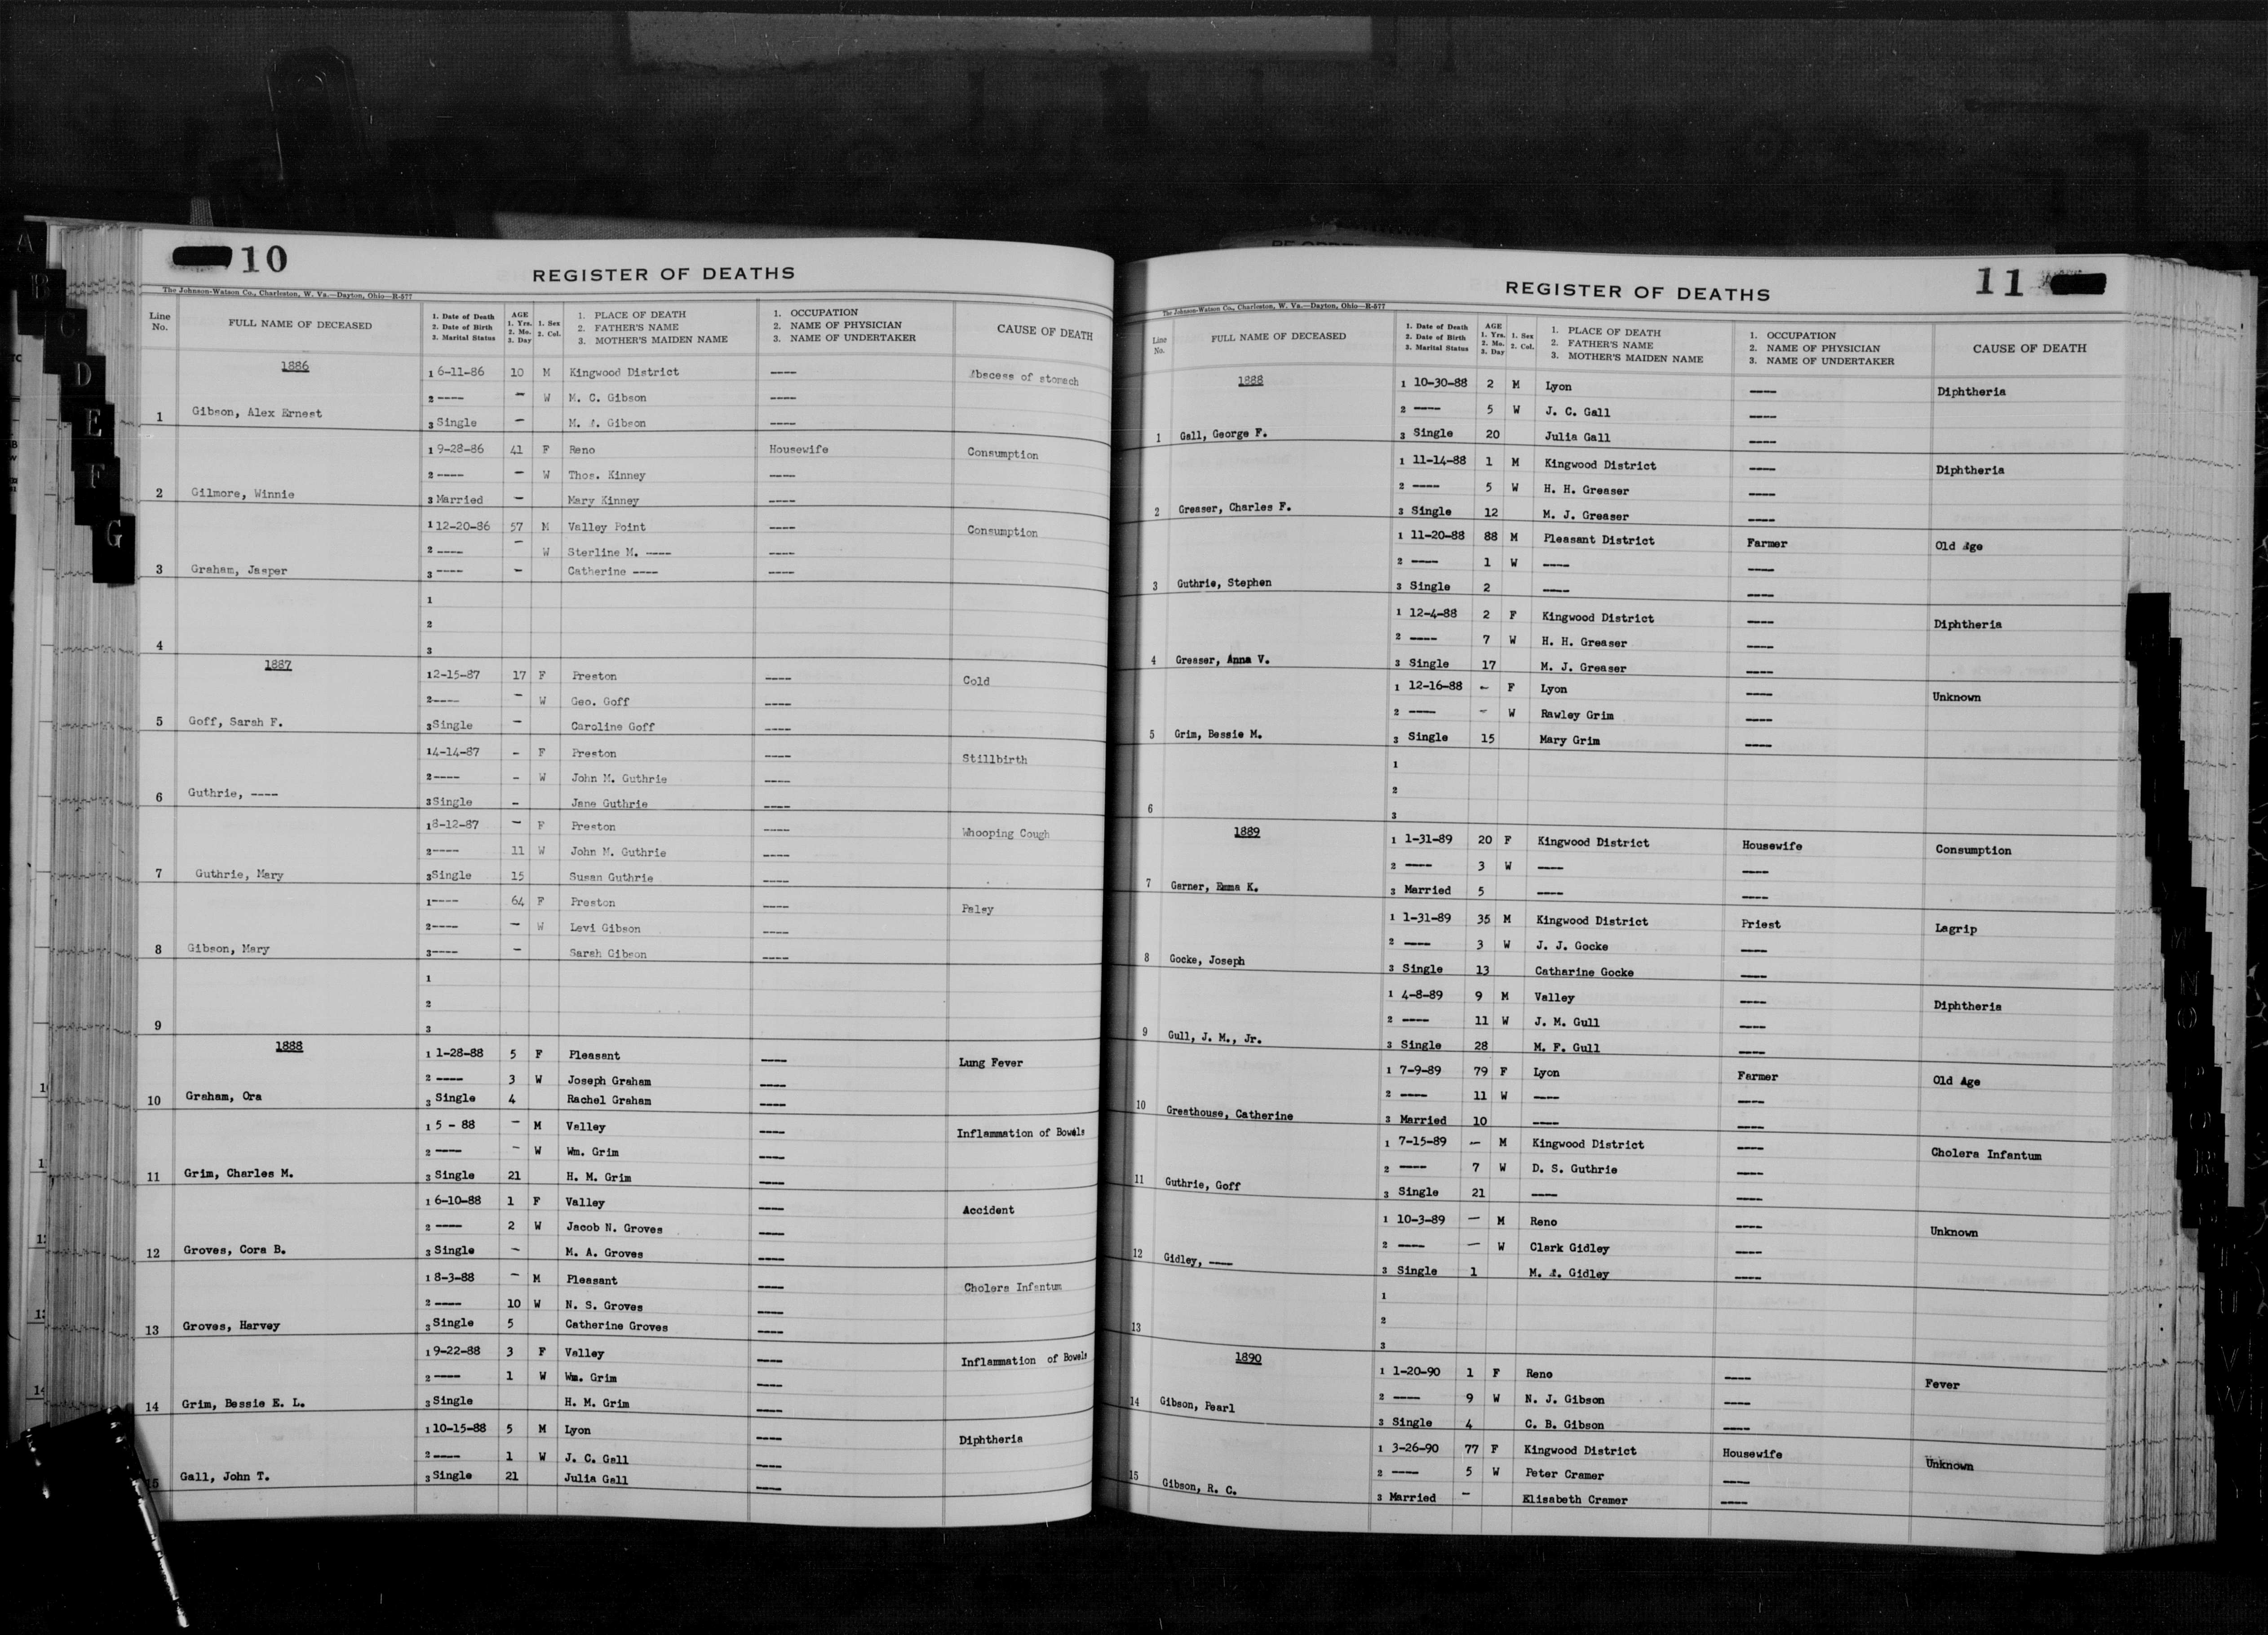 10
REGISTER OF DEATHS
The Johnson-Watson Co., Charleston, W. Va.—Dayton, Ohio—R-577
Line No. | FULL NAME OF DECEASED | 1. Date of Death 2. Date of Birth 3. Marital Status | AGE 1. Yrs. 2. Mo. 3. Day | 1. Sex 2. Col. | 1. PLACE OF DEATH 2. FATHER'S NAME 3. MOTHER'S MAIDEN NAME | 1. OCCUPATION 2. NAME OF PHYSICIAN 3. NAME OF UNDERTAKER | CAUSE OF DEATH
1886
1 6-11-86 10 M Kingwood District ---- Abscess of stomach
2 ---- - W M. C. Gibson ----
1 Gibson, Alex Ernest 3 Single - M. A. Gibson ----
1 9-28-86 41 F Reno Housewife Consumption
2 ---- - W Thos. Kinney ----
2 Gilmore, Winnie 3 Married - Mary Kinney ----
1 12-20-86 57 M Valley Point ---- Consumption
2 ---- - W Sterline M. ---- ----
3 Graham, Jasper 3 ---- - Catherine ---- ----
1
2
4 3
1887
1 2-15-87 17 F Preston ---- Cold
2 ---- - W Geo. Goff ----
5 Goff, Sarah F. 3 Single - Caroline Goff ----
1 4-14-87 - F Preston ---- Stillbirth
2 ---- - W John M. Guthrie ----
6 Guthrie, ---- 3 Single - Jane Guthrie ----
1 8-12-87 - F Preston ---- Whooping Cough
2 ---- 11 W John M. Guthrie ----
7 Guthrie, Mary 3 Single 15 Susan Guthrie ----
1 ---- 64 F Preston ---- Palsy
2 ---- - W Levi Gibson ----
8 Gibson, Mary 3 ---- - Sarah Gibson ----
1
2
9 3
1888
1 1-28-88 5 F Pleasant ---- Lung Fever
2 ---- 3 W Joseph Graham ----
10 Graham, Ora 3 Single 4 Rachel Graham ----
1 5 - 88 - M Valley ---- Inflammation of Bowels
2 ---- - W Wm. Grim ----
11 Grim, Charles M. 3 Single 21 H. M. Grim ----
1 6-10-88 1 F Valley ---- Accident
2 ---- 2 W Jacob N. Groves ----
12 Groves, Cora B. 3 Single - M. A. Groves ----
1 8-3-88 - M Pleasant ---- Cholera Infantum
2 ---- 10 W N. S. Groves ----
13 Groves, Harvey 3 Single 5 Catherine Groves ----
1 9-22-88 3 F Valley ---- Inflammation of Bowels
2 ---- 1 W Wm. Grim ----
14 Grim, Bessie E. L. 3 Single H. M. Grim ----
1 10-15-88 5 M Lyon ---- Diphtheria
2 ---- 1 W J. C. Gall ----
15 Gall, John T. 3 Single 21 Julia Gall ----
11
REGISTER OF DEATHS
The Johnson-Watson Co., Charleston, W. Va.—Dayton, Ohio—R-577
Line No. | FULL NAME OF DECEASED | 1. Date of Death 2. Date of Birth 3. Marital Status | AGE 1. Yrs. 2. Mo. 3. Day | 1. Sex 2. Col. | 1. PLACE OF DEATH 2. FATHER'S NAME 3. MOTHER'S MAIDEN NAME | 1. OCCUPATION 2. NAME OF PHYSICIAN 3. NAME OF UNDERTAKER | CAUSE OF DEATH
1888
1 10-30-88 2 M Lyon ---- Diphtheria
2 ---- 5 W J. C. Gall ----
1 Gall, George F. 3 Single 20 Julia Gall ----
1 11-14-88 1 M Kingwood District ---- Diphtheria
2 ---- 5 W H. H. Greaser ----
2 Greaser, Charles F. 3 Single 12 M. J. Greaser ----
1 11-20-88 88 M Pleasant District Farmer Old Age
2 ---- 1 W ---- ----
3 Guthrie, Stephen 3 Single 2 ---- ----
1 12-4-88 2 F Kingwood District ---- Diphtheria
2 ---- 7 W H. H. Greaser ----
4 Greaser, Anna V. 3 Single 17 M. J. Greaser ----
1 12-16-88 - F Lyon ---- Unknown
2 ---- - W Rawley Grim ----
5 Grim, Bessie M. 3 Single 15 Mary Grim ----
1
2
6 3
1889
1 1-31-89 20 F Kingwood District Housewife Consumption
2 ---- 3 W ---- ----
7 Garner, Emma K. 3 Married 5 ---- ----
1 1-31-89 35 M Kingwood District Priest Lagrip
2 ---- 3 W J. J. Gocke ----
8 Gocke, Joseph 3 Single 13 Catharine Gocke ----
1 4-8-89 9 M Valley ---- Diphtheria
2 ---- 11 W J. M. Gull ----
9 Gull, J. M., Jr. 3 Single 28 M. F. Gull ----
1 7-9-89 79 F Lyon Farmer Old Age
2 ---- 11 W ---- ----
10 Greathouse, Catherine 3 Married 10 ---- ----
1 7-15-89 - M Kingwood District ---- Cholera Infantum
2 ---- 7 W D. S. Guthrie ----
11 Guthrie, Goff 3 Single 21 ---- ----
1 10-3-89 - M Reno ---- Unknown
2 ---- - W Clark Gidley ----
12 Gidley, ---- 3 Single 1 M. A. Gidley ----
1
2
13 3
1890
1 1-20-90 1 F Reno ---- Fever
2 ---- 9 W N. J. Gibson ----
14 Gibson, Pearl 3 Single 4 C. B. Gibson ----
1 3-26-90 77 F Kingwood District Housewife Unknown
2 ---- 5 W Peter Cramer ----
15 Gibson, R. C. 3 Married - Elisabeth Cramer ----
A
B
C
D
E
F
G